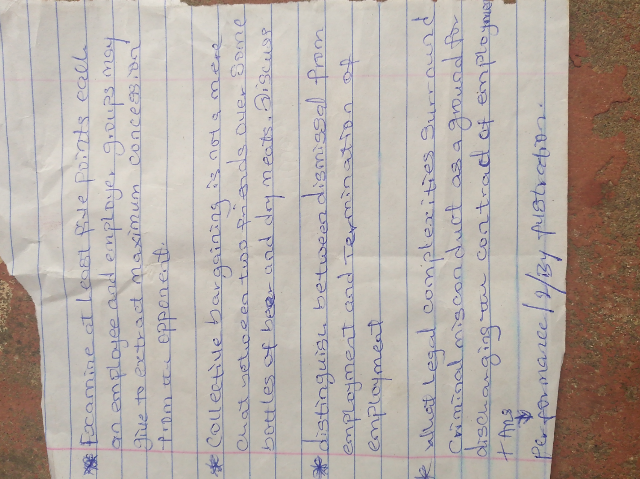 * Examine at least five points each
an employee and employer groups may
give to extract maximum concession
from an opponent.
* Collective bargaining is not a mere
chat between two friends over some
bottles of beer and dry meats. Discuss
* distinguish between dismissal from
employment and Termination of
employment
* what legal complexities surround
Criminal misconduct as a ground for
discharging an contract of employment
+ Ans
Performance / 2/By frustration.